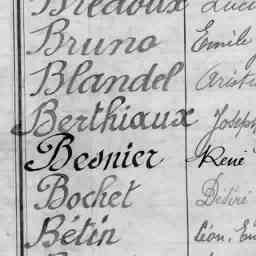 Bredoux Luci
Bruno Emile
Blandel Aristi
Berthiaux Joseph
Besnier René
Bochet Désiré
Bétin Léon, Em